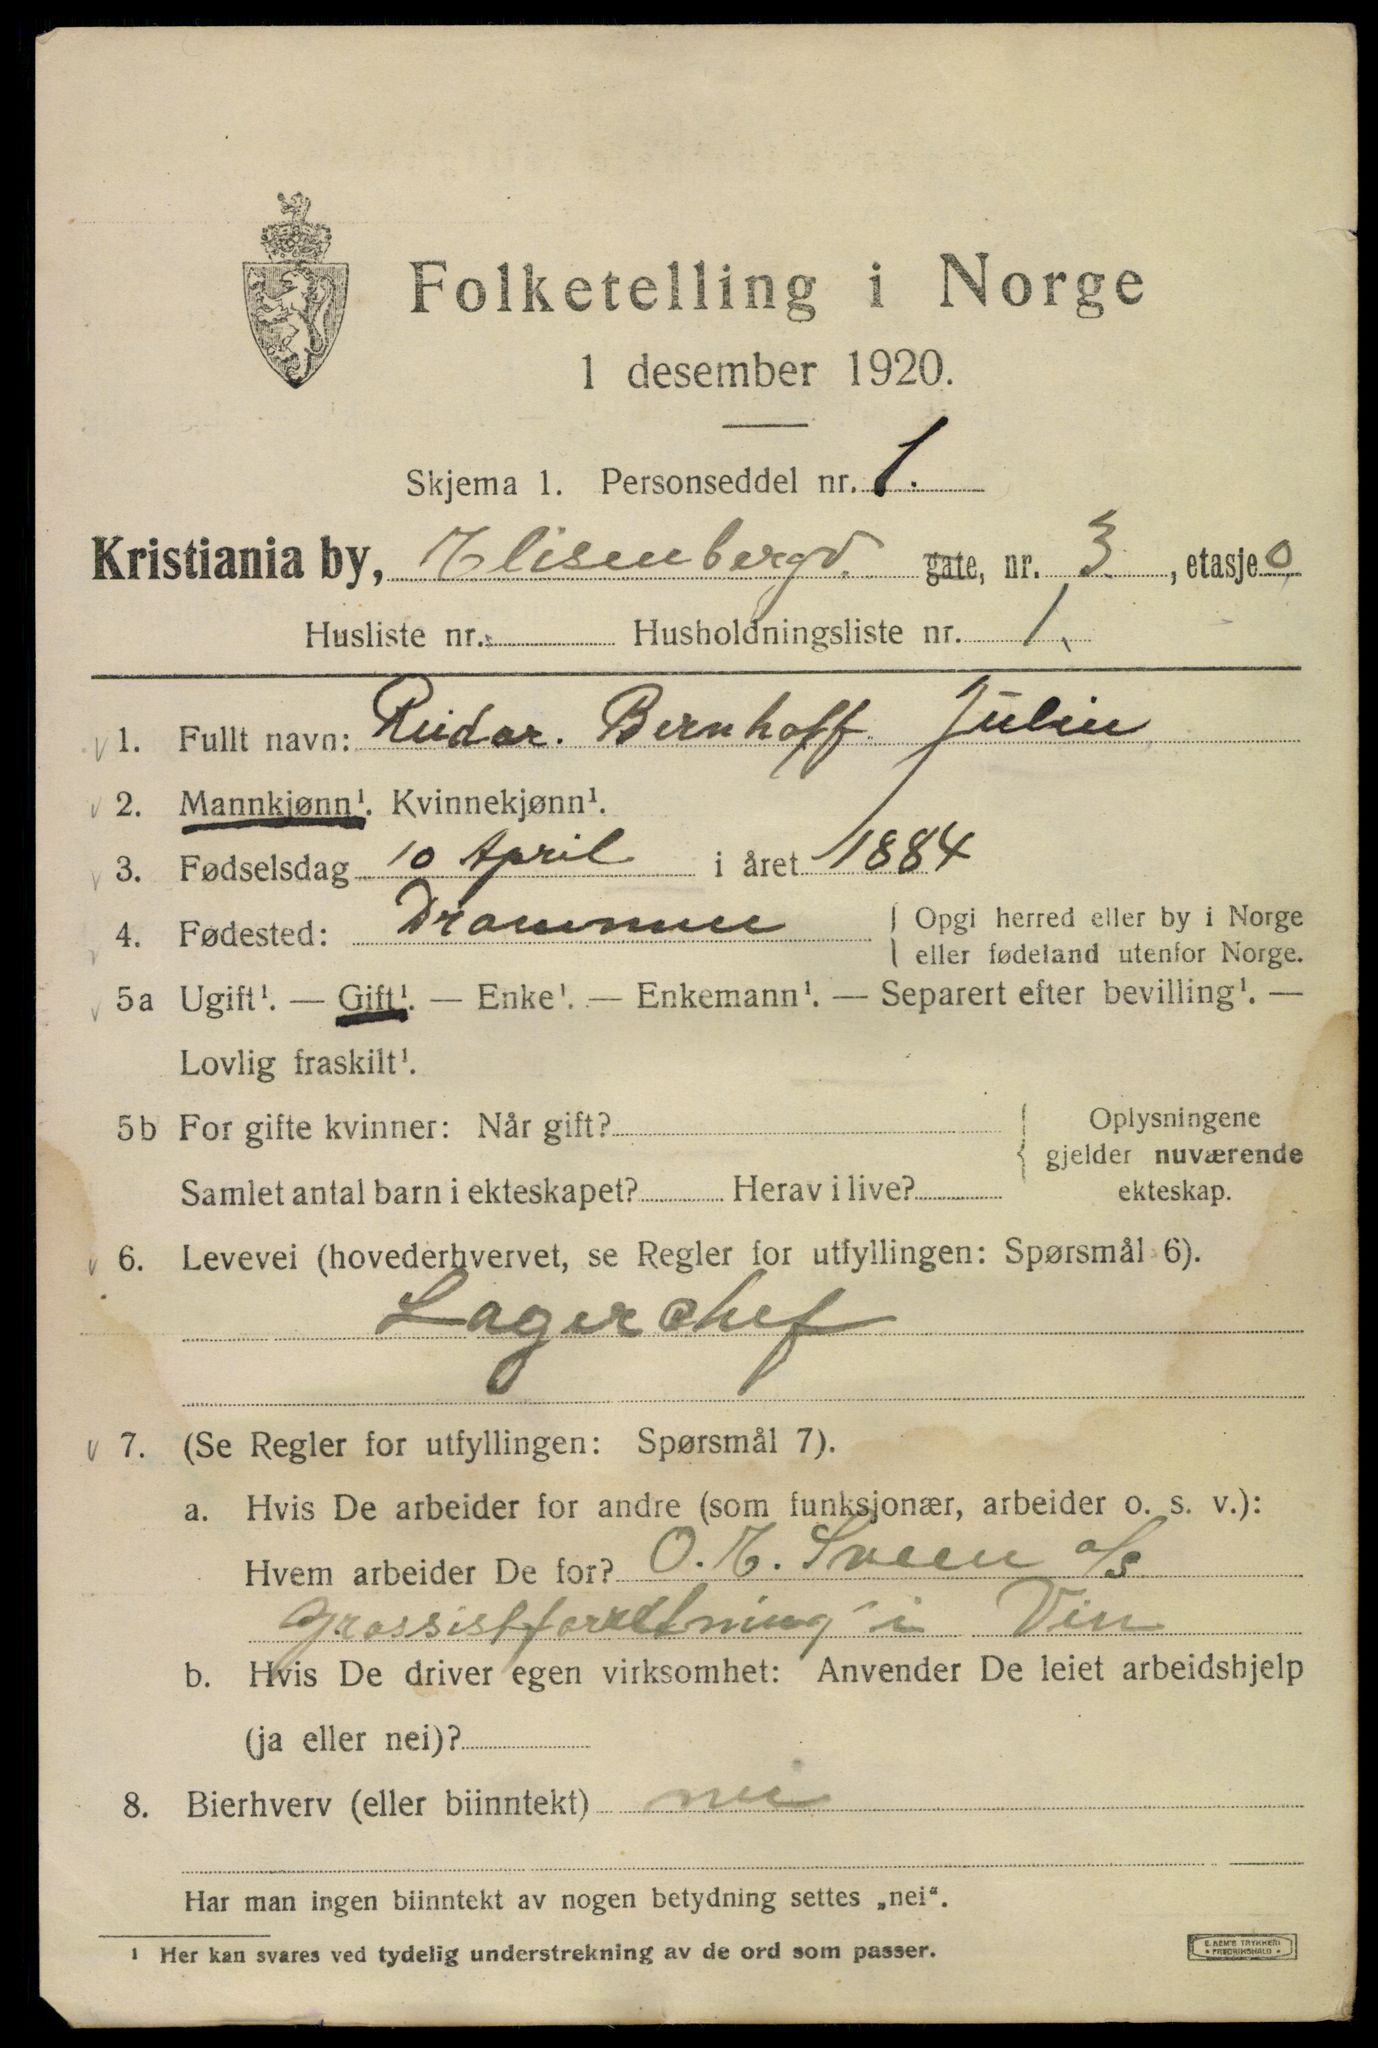 Folketelling i Norge
1 desember 1920.
Skjema 1. Personseddel nr. 1.
Kristiania by, Elisenbergv. gate, nr. 3, etasje 0
Husliste nr. Husholdningsliste nr. 1.
1. Fullt navn: Reidar. Bernhoff Julin
2. Mannkjønn¹. Kvinnekjønn¹.
3. Fødselsdag 10 April i året 1884
4. Fødested: Drammen { Opgi herred eller by i Norge
eller fødeland utenfor Norge.
5a Ugift¹. — Gift¹. — Enke¹. — Enkemann¹. — Separert efter bevilling¹. —
Lovlig fraskilt¹.
5b For gifte kvinner: Når gift? { Oplysningene
gjelder nuværende
Samlet antal barn i ekteskapet? Herav i live? ekteskap.
6. Levevei (hovederhvervet, se Regler for utfyllingen: Spørsmål 6).
Lagerchef
7. (Se Regler for utfyllingen: Spørsmål 7).
a. Hvis De arbeider for andre (som funksjonær, arbeider o. s. v.):
Hvem arbeider De for? O. E. Sveen a/s
Grossistforretning i Vin
b. Hvis De driver egen virksomhet: Anvender De leiet arbeidshjelp
(ja eller nei)?
8. Bierhverv (eller biinntekt) nei
Har man ingen biinntekt av nogen betydning settes „nei“.
¹ Her kan svares ved tydelig understrekning av de ord som passer.
E. SEM'S TRYKKERI
• FREDRIKSHALD •